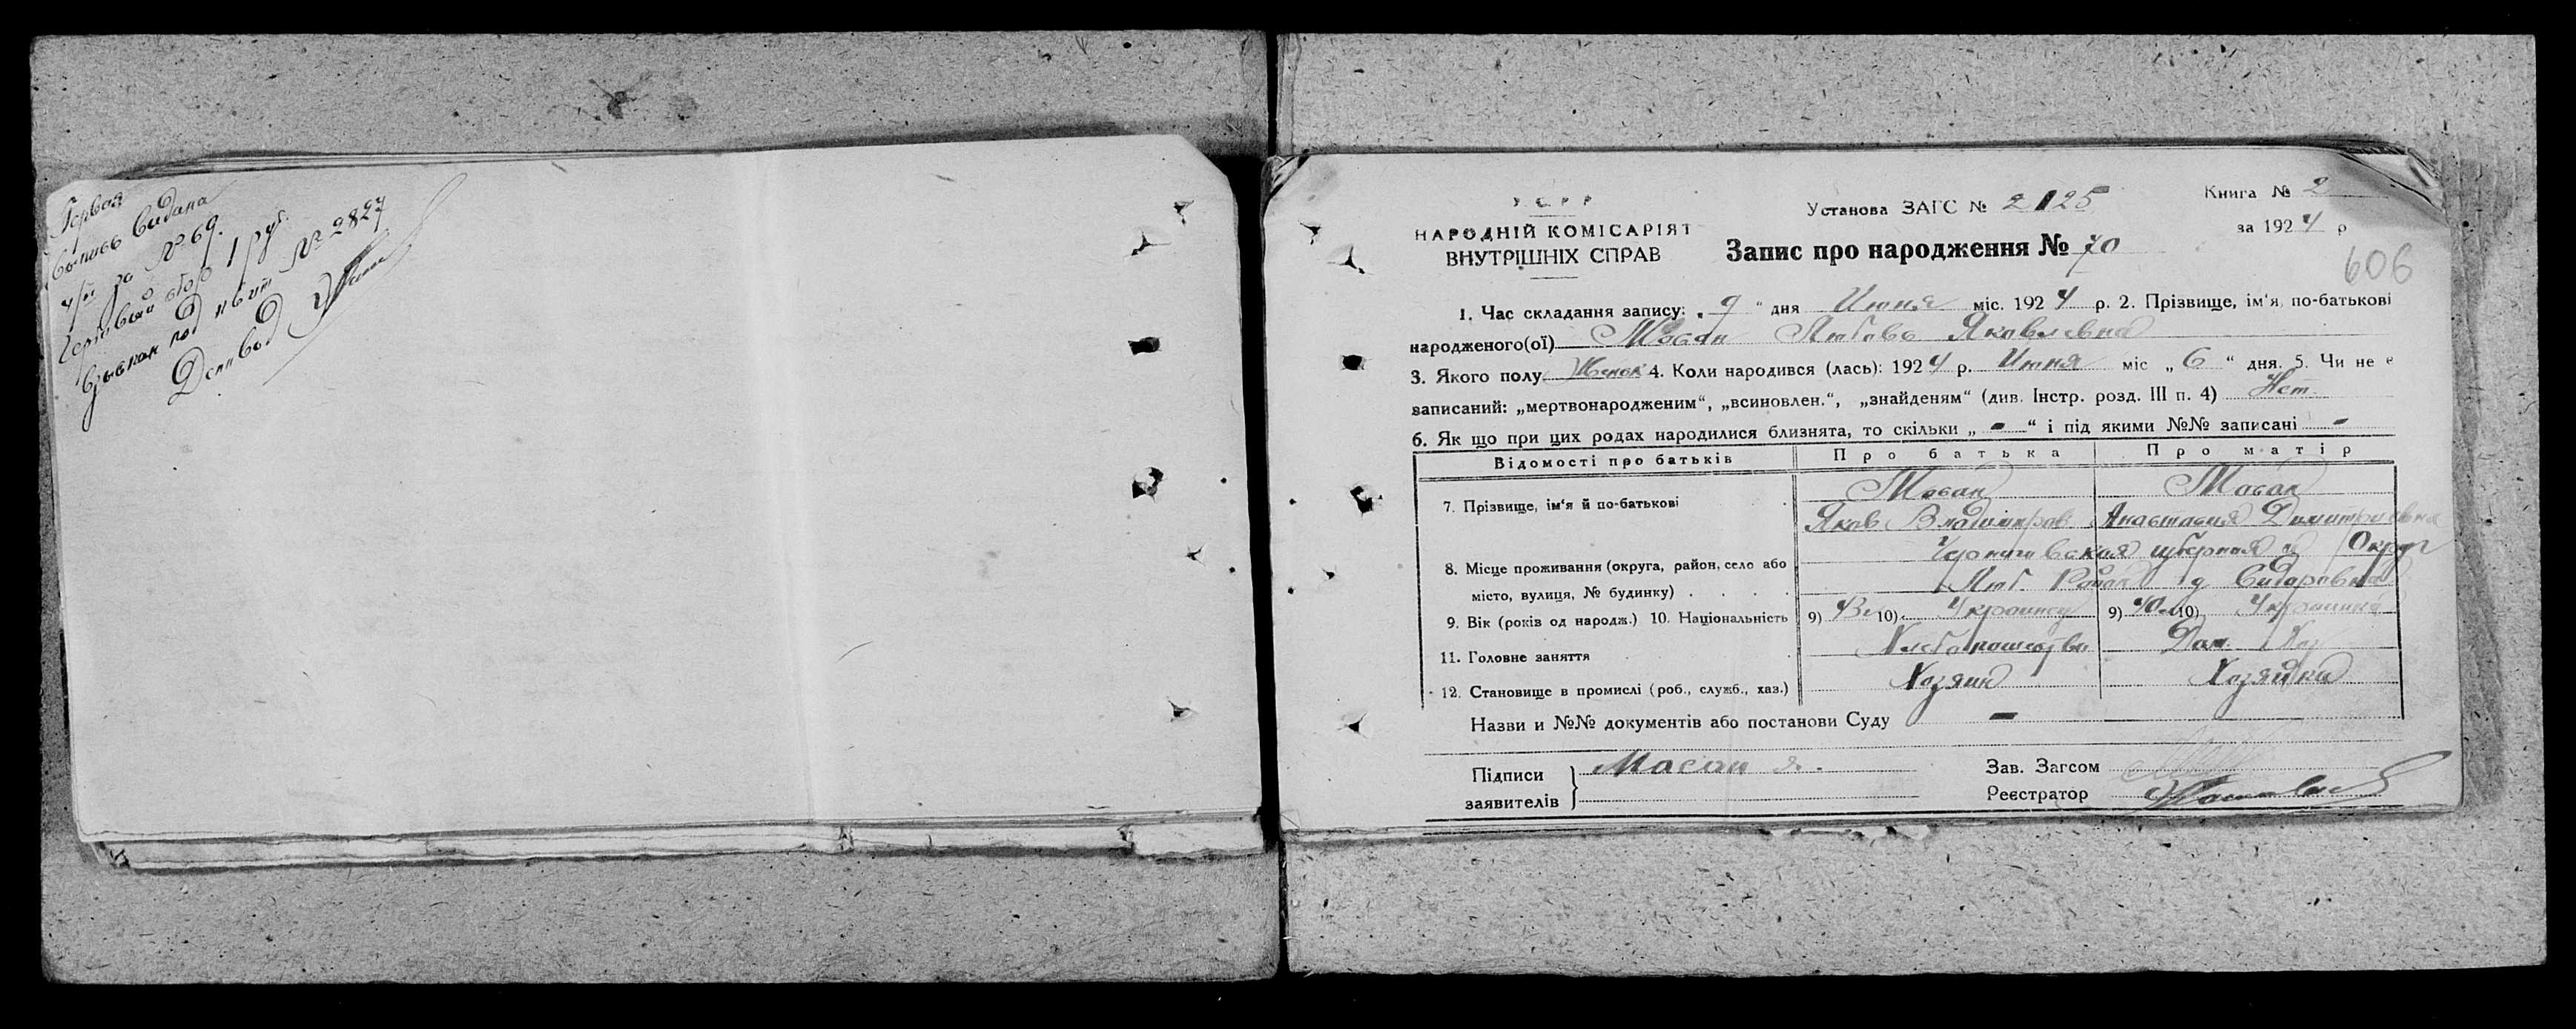 Первая
выпись выдана
за № 69.
Гербовый сбор 1 руб.
взыскан под квит № 2827
У С Р Р
НАРОДНІЙ КОМІСАРІЯТ
ВНУТРІШНІХ СПРАВ
Установа ЗАГС № 2125
Книга № 2
за 1924 р
Запис про народження № 70
606
1. Час складання запису: „9“ дня Июня міс. 1924 р. 2. Прізвище, ім‘я, по-батькові
народженого(ої) Масан Любовь Яковлевна
3. Якого полу Женск 4. Коли народився (лась): 1924 р. Июня міс „6“ дня. 5. Чи не є
записаний: „мертвонародженим“, „всиновлен.“, „знайденям“ (див. Інстр. розд. III п. 4) Нет
6. Як що при цих родах народилися близнята, то скільки „ - “ і під якими №№ записані -
Відомості про батьків Про батька Про матір
7. Прізвище, ім‘я й по-батькові Масан Масан
Яков Владимиров Анастасия Димитриевна
8. Місце проживання (округа, район, село або Черниговская губерния и Округ
місто, вулиця, № будинку) Люб. Район д
9. Вік (років од народж.) 10. Національність 9) 43 10) Украинец 9) 40 10) Украинка
11. Головне заняття Хлебопашество Дом. Хоз
12. Становище в промислі (роб., служб., хаз.) Хозяин Хозяйка
Назви и №№ документів або постанови Суду -
Підписи Масан Я.
заявителів
Зав. Загсом
Реєстратор